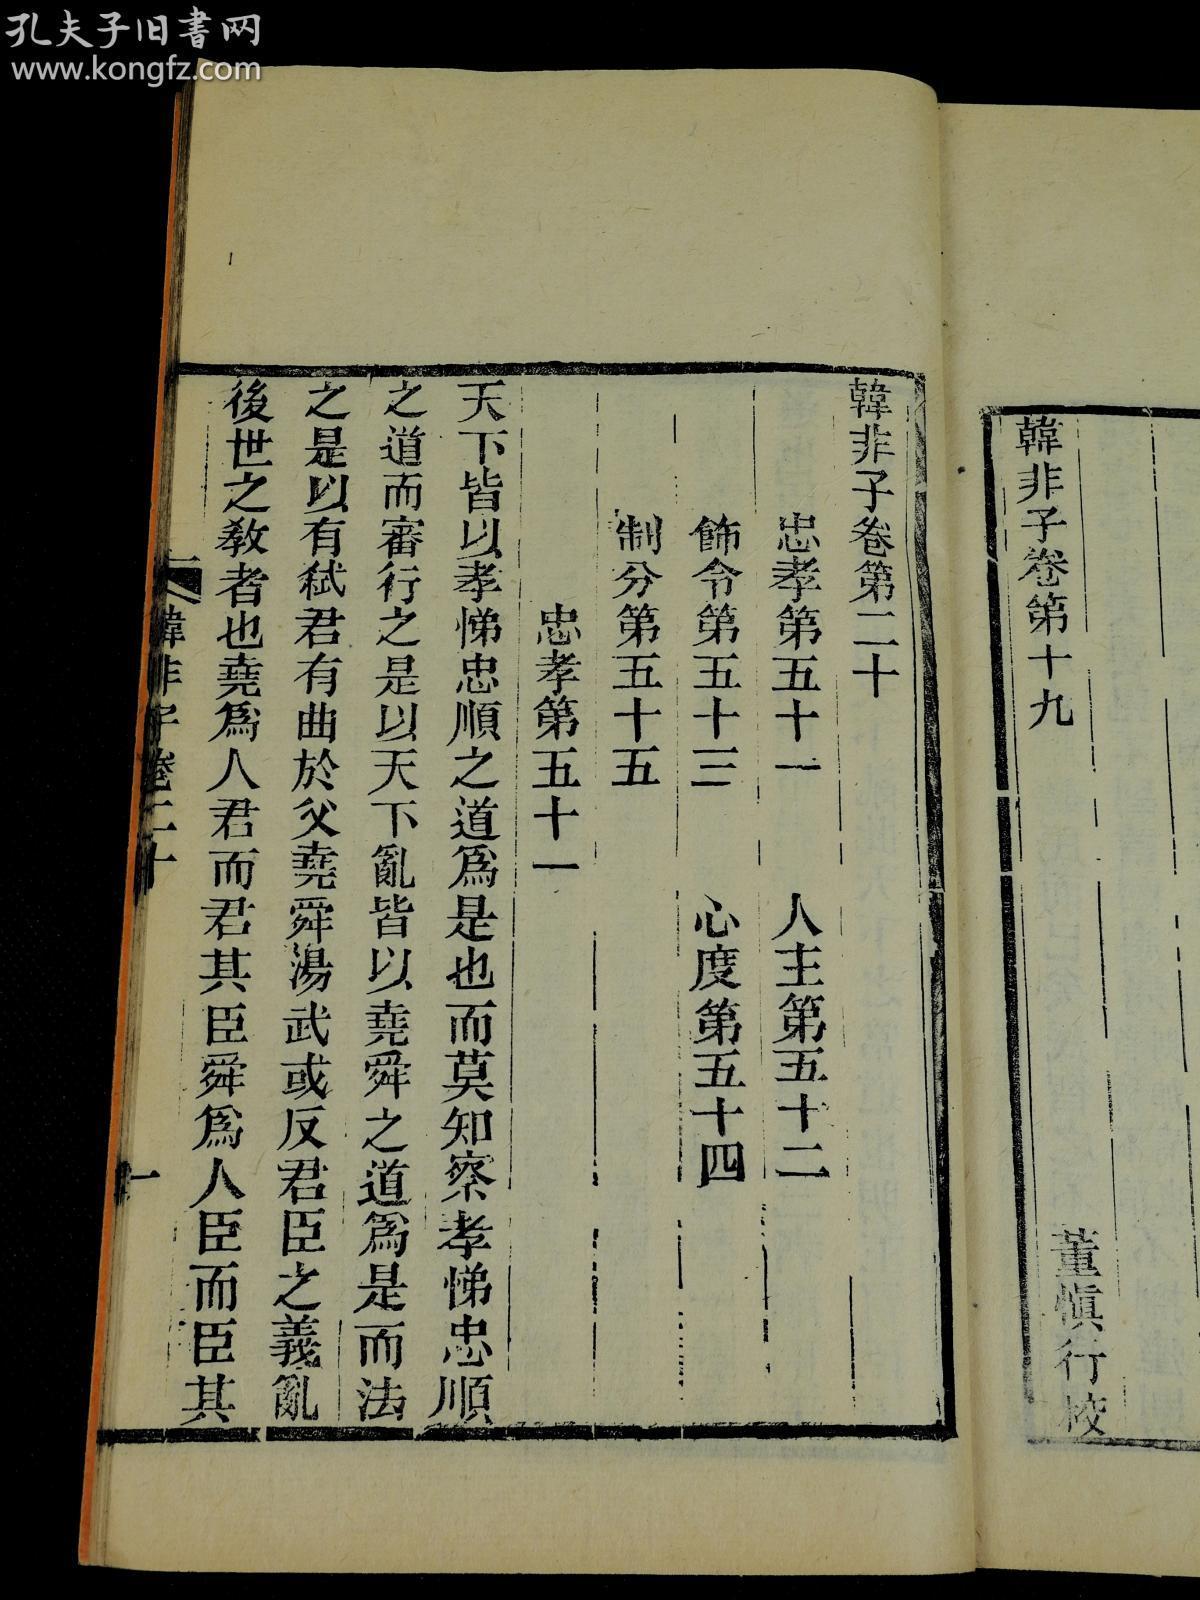 孔夫子旧書网
www.kongfz.com
韓非子卷第十九
董慎行校
韓非子卷第二十
忠孝第五十一　人主第五十二
飾令第五十三　心度第五十四
制分第五十五
忠孝第五十一
天下皆以孝悌忠順之道爲是也而莫知察孝悌忠順
之道而審行之是以天下亂皆以堯舜之道爲是而法
之是以有弑君有曲於父堯舜湯武或反君臣之義亂
後世之教者也堯爲人君而君其臣舜爲人臣而臣其
韓非子卷二十
一